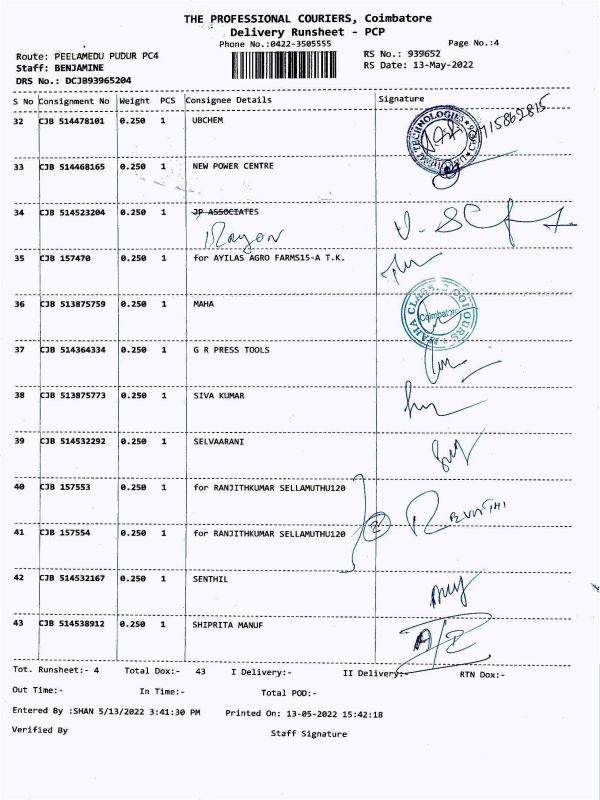 THE PROFESSIONAL COURIERS, Coimbatore
Delivery Runsheet - PCP
Phone No.:0422-3505555
Page No.:4
Route: PEELAMEDU PUDUR PC4
RS No.: 939652
Staff: BENJAMINE
RS Date: 13-May-2022
DRS No.: DCJB93965204
S No Consignment No Weight PCS Consignee Details Signature
32 CJB 514478101 0.250 1 UBCHEM
33 CJB 514468165 0.250 1 NEW POWER CENTRE
34 CJB 514523204 0.250 1 JP ASSOCIATES
35 CJB 157470 0.250 1 for AYILAS AGRO FARMS15-A T.K.
36 CJB 513875759 0.250 1 MAHA
Coimbatore
37 CJB 514364334 0.250 1 G R PRESS TOOLS
38 CJB 513875773 0.250 1 SIVA KUMAR
39 CJB 514532292 0.250 1 SELVAARANI
40 CJB 157553 0.250 1 for RANJITHKUMAR SELLAMUTHU120
2
41 CJB 157554 0.250 1 for RANJITHKUMAR SELLAMUTHU120
42 CJB 514532167 0.250 1 SENTHIL
43 CJB 514538912 0.250 1 SHIPRITA MANUF
Tot. Runsheet:- 4 Total Dox:- 43 I Delivery:- II Delivery:- RTN Dox:-
Out Time:- In Time:- Total POD:-
Entered By :SHAN 5/13/2022 3:41:30 PM Printed On: 13-05-2022 15:42:18
Verified By Staff Signature